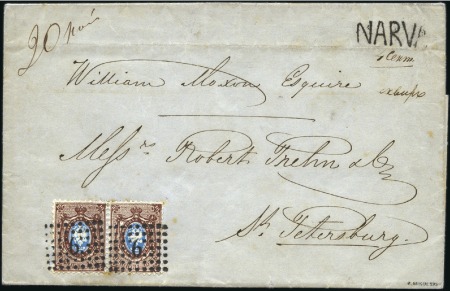 20 коп
NARVA
William Moxon Esquire
Mess.rs Robert Trehn & Co
St. Petersburg.